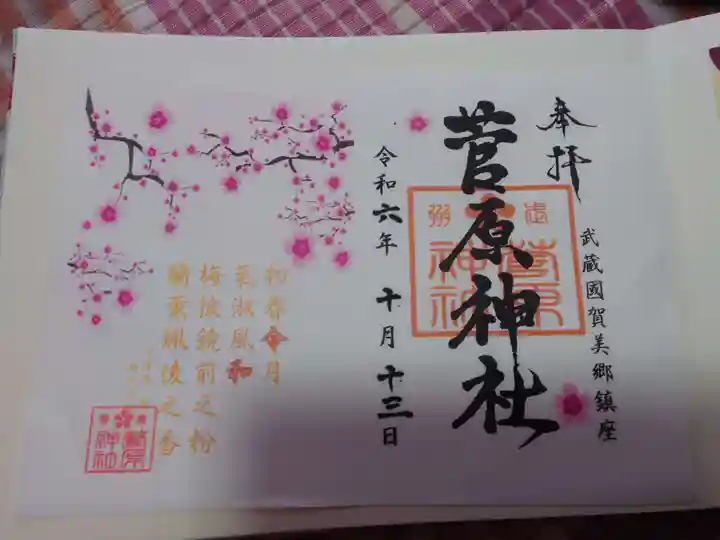 奉拝
武蔵國賀美郷鎮座
菅原神社
武州
菅原
神社
令和六年 十月十三日
初春令月
氣淑風和
梅披鏡前之粉
蘭薫珮後之香
菅原
神社